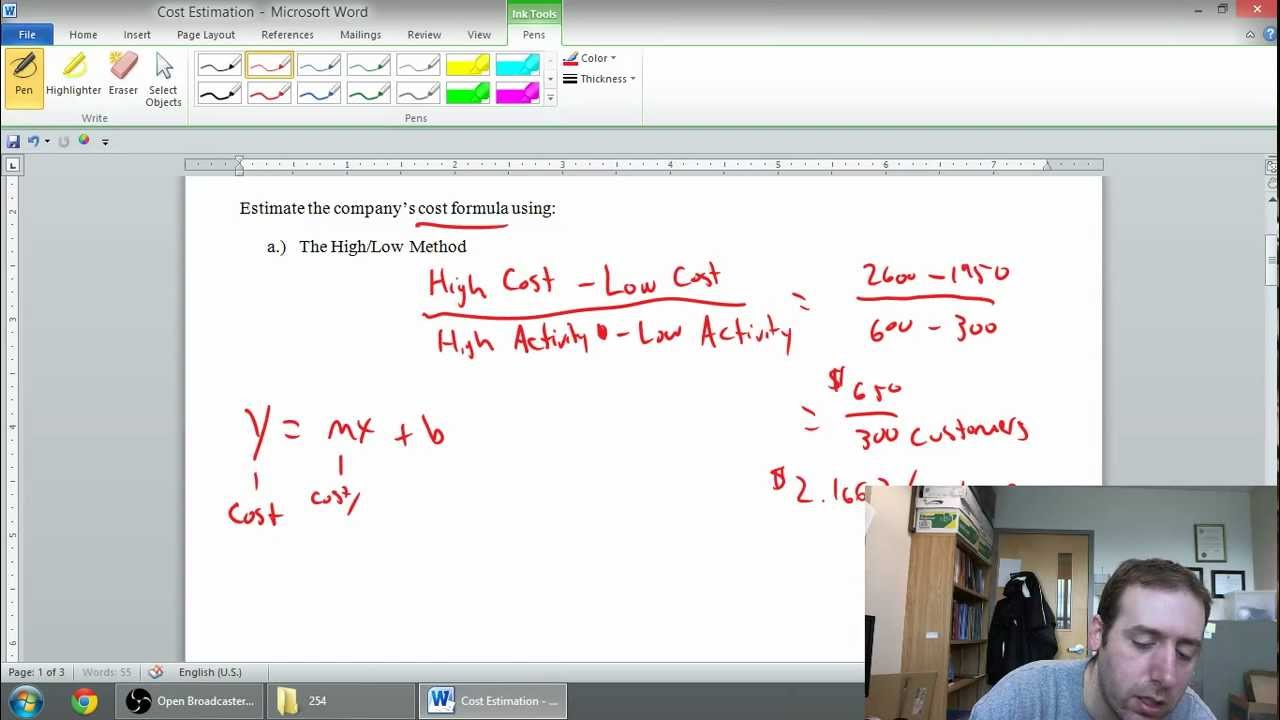 Cost Estimation - Microsoft Word
Ink Tools
File Home Insert Page Layout References Mailings Review View Pens
Pen Highlighter Eraser Select Objects
Color
Thickness
Write Pens
1 2 3 4 5 6 7
Estimate the company's cost formula using:
a.) The High/Low Method
High Cost - Low Cost = 2600 - 1950
High Activity - Low Activity 600 - 300
= $650
300 customers
y = mx + b
$2.166
cost cost/
Page: 1 of 3 Words: 55 English (U.S.)
Open Broadcaster... 254 Cost Estimation - ...